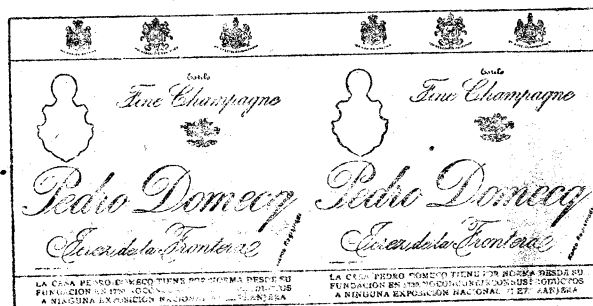 Estilo
Fine Champagne
Pedro Domecq
Jerez de la Frontera
LA CASA PEDRO DOMECQ TIENE POR NORMA DESDE SU
FUNDACION EN 1730
A NINGUNA EXPOSICION NACIONAL
Estilo
Fine Champagne
Pedro Domecq
Jerez de la Frontera
LA CASA PEDRO DOMECQ TIENE POR NORMA DESDE SU
FUNDACION EN 1730 NO CONCURRIR CON SUS PRODUCTOS
A NINGUNA EXPOSICION NACIONAL NI EXTRANJERA